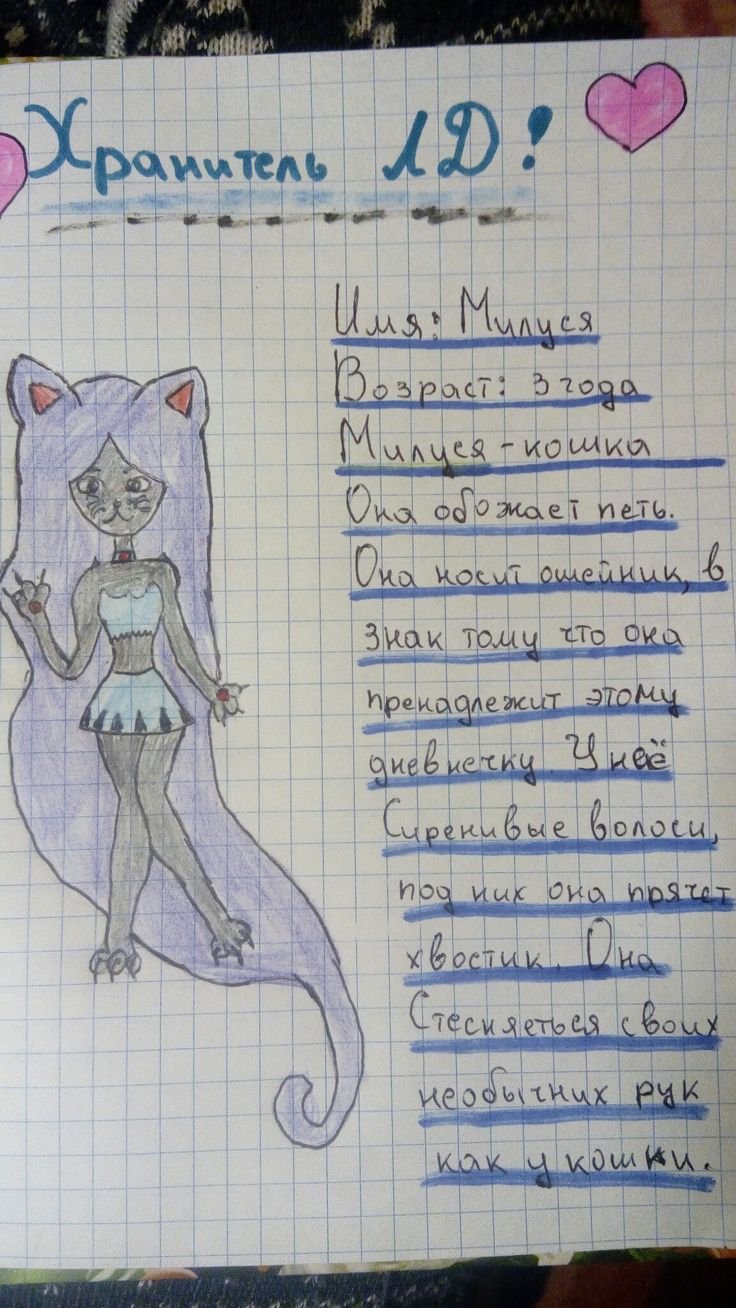 Хранитель ЛД!
Имя: Милуся
Возраст: 3 года
Милуся - кошка
Она обожает петь.
Она носит ошейник, в
знак тому что она
пренадлежит этому
дневнечку. У неё
Сиренивые волоси,
под них она прячет
хвостик. Она
Стесняеться своих
необычних рук
как у кошки.